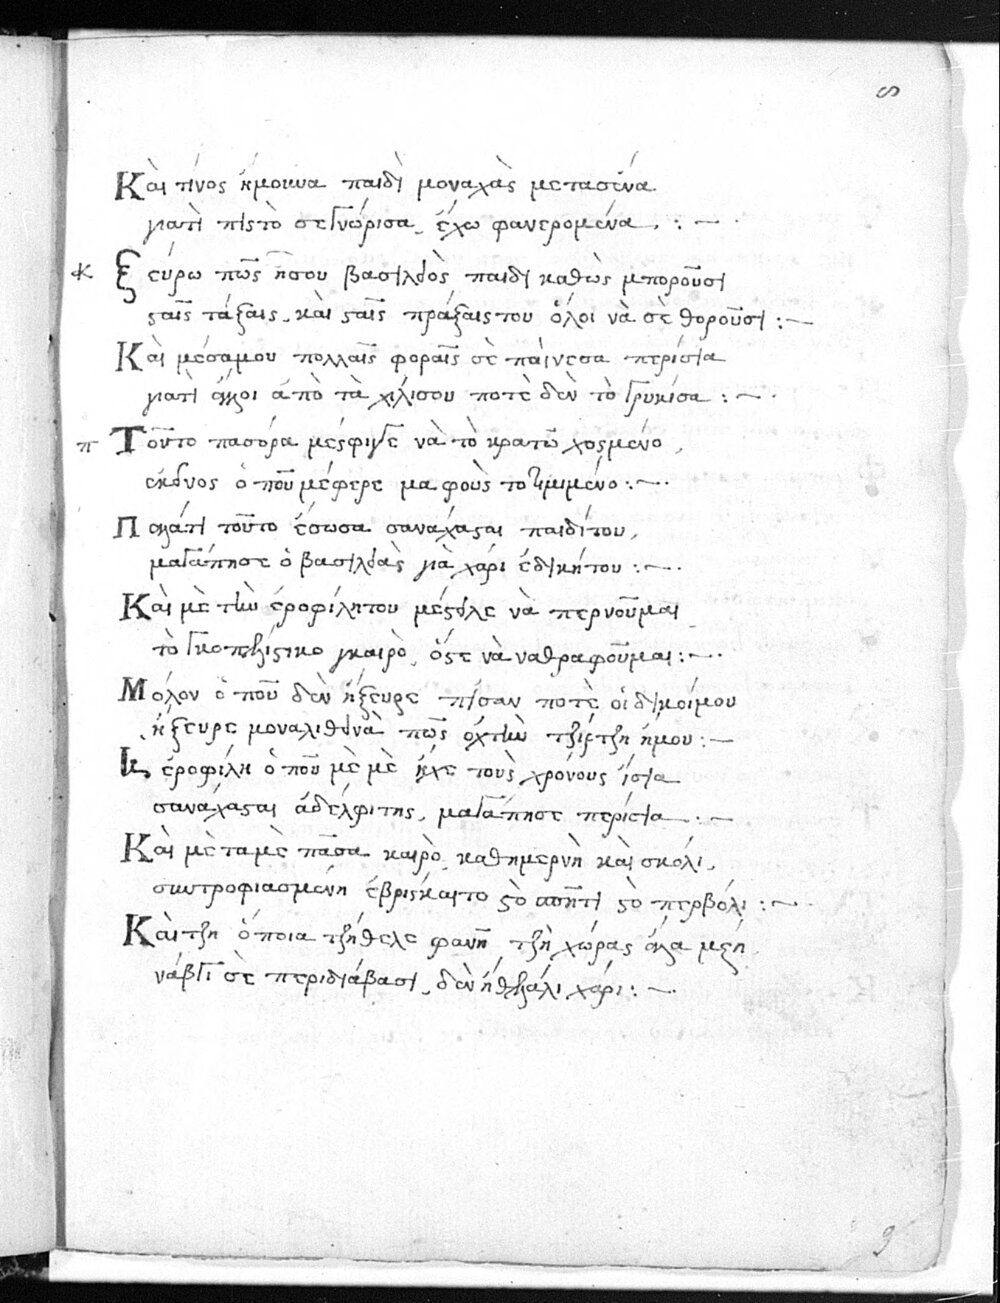 Κὰι τίνος ἤμουνα παιδὶ μοναχὰς μετασένα.
γιατὶ πιστὸ σεγνώρισα, ἔχω φανερομένα, : —
κ Ξεύρω πῶς ἤσου βασιλέος παιδὶ καθὼς μποροῦσι
σταῖς τάξαις, κὰι σταῖς πράξαιςτου ὅλοι νὰ σὲ θοροῦσι : —
Κὰι μέσαμου πολλαῖς φοραῖς σὲ παίνεσα περίσια
γιατὶ ἄλλοι ἀπὸ τὰ χίλισου ποτὲ δὲν τὸ γρυκίσα : —
π Τοῦντο πασόρα μέσφιγγε νὰ τὸ κρατῶ χοσμένο,
εκείνος ὁ ποῦ μέφερε μα φοὺς το :—
Π αλάτι τοῦτο ἔσωσα σανάχασαι παιδίτου,
μαγάπησε ὁ βασιλέας γιὰ χάρι ἐδικήτου :—
Κὰι μὲ τὴν ἐροφίλητου μέστιλε νὰ περνοῦμαι
τὸ καιρὸ, ὅστε νὰ ναθραφοῦμαι :—
Μόλον ὁ ποῦ δὲν ἤξευρε πίσαν ποτὲ οἱ δικοίμου
ἤξευρε μοναλιθινὰ πῶς ὀχτιὼ τζίρτζη ἤμου : —
Κ ἐροφίλη ὁ ποῦ μὲ μὲ ἦχε τοὺς χρόνους ἴσια
σανάχασαι ἀδελφιτης, μαγάπησε περίσια — : —
Κὰι μὲ ταμὲ πᾶσα καιρὸ, καθημερνὴ κὰι σκόλι,
συντροφιασμένη ἐβρισκαιτο στὸ σπῆτι στὸ περβόλι : —
Κὰι τζη ὅποια τζήθελε φανῆ τζὴ χώρας ἄλα μέρη
νάβγῆ σὲ περιδιάβασι, δὲν χάρι : —
9